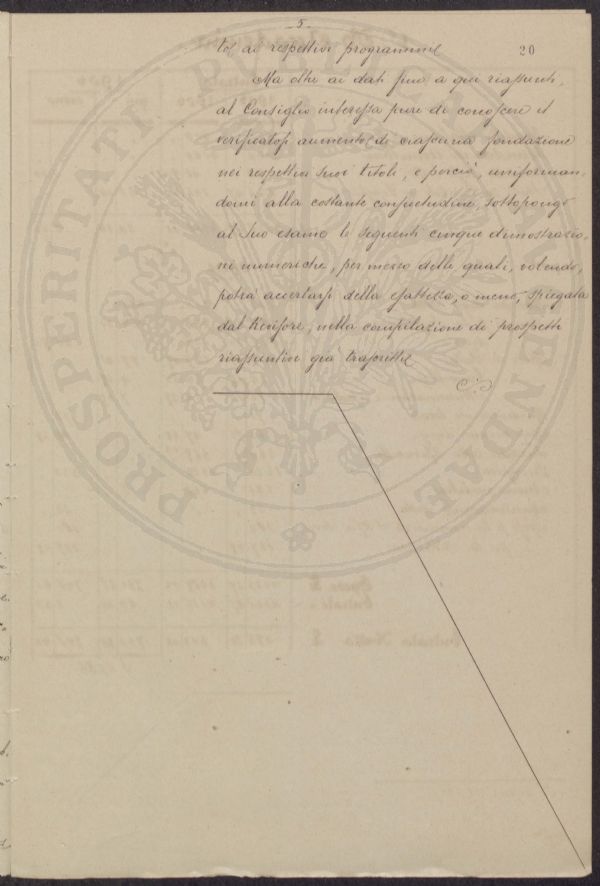 - 5 -
20
ai respettivi programmi
Ma oltre ai dati fino a qui riassunti,
al Consiglio interessa pure di conoscere il
verificatosi aumento di ciascuna fondazione
nei respettivi suoi titoli, e perciò, uniforman-
domi alla costante consuetudine, sottopongo
al suo esame le seguenti cinque dimostrazio-
ni numeriche, per mezzo delle quali, volendo,
potrà accertarsi della esattezza, o meno, spiegata
dal Revisore, nella compilazione di prospetti
riassuntivi già trascritti
PROSPERITATI PUBLICAE AUGENDAE